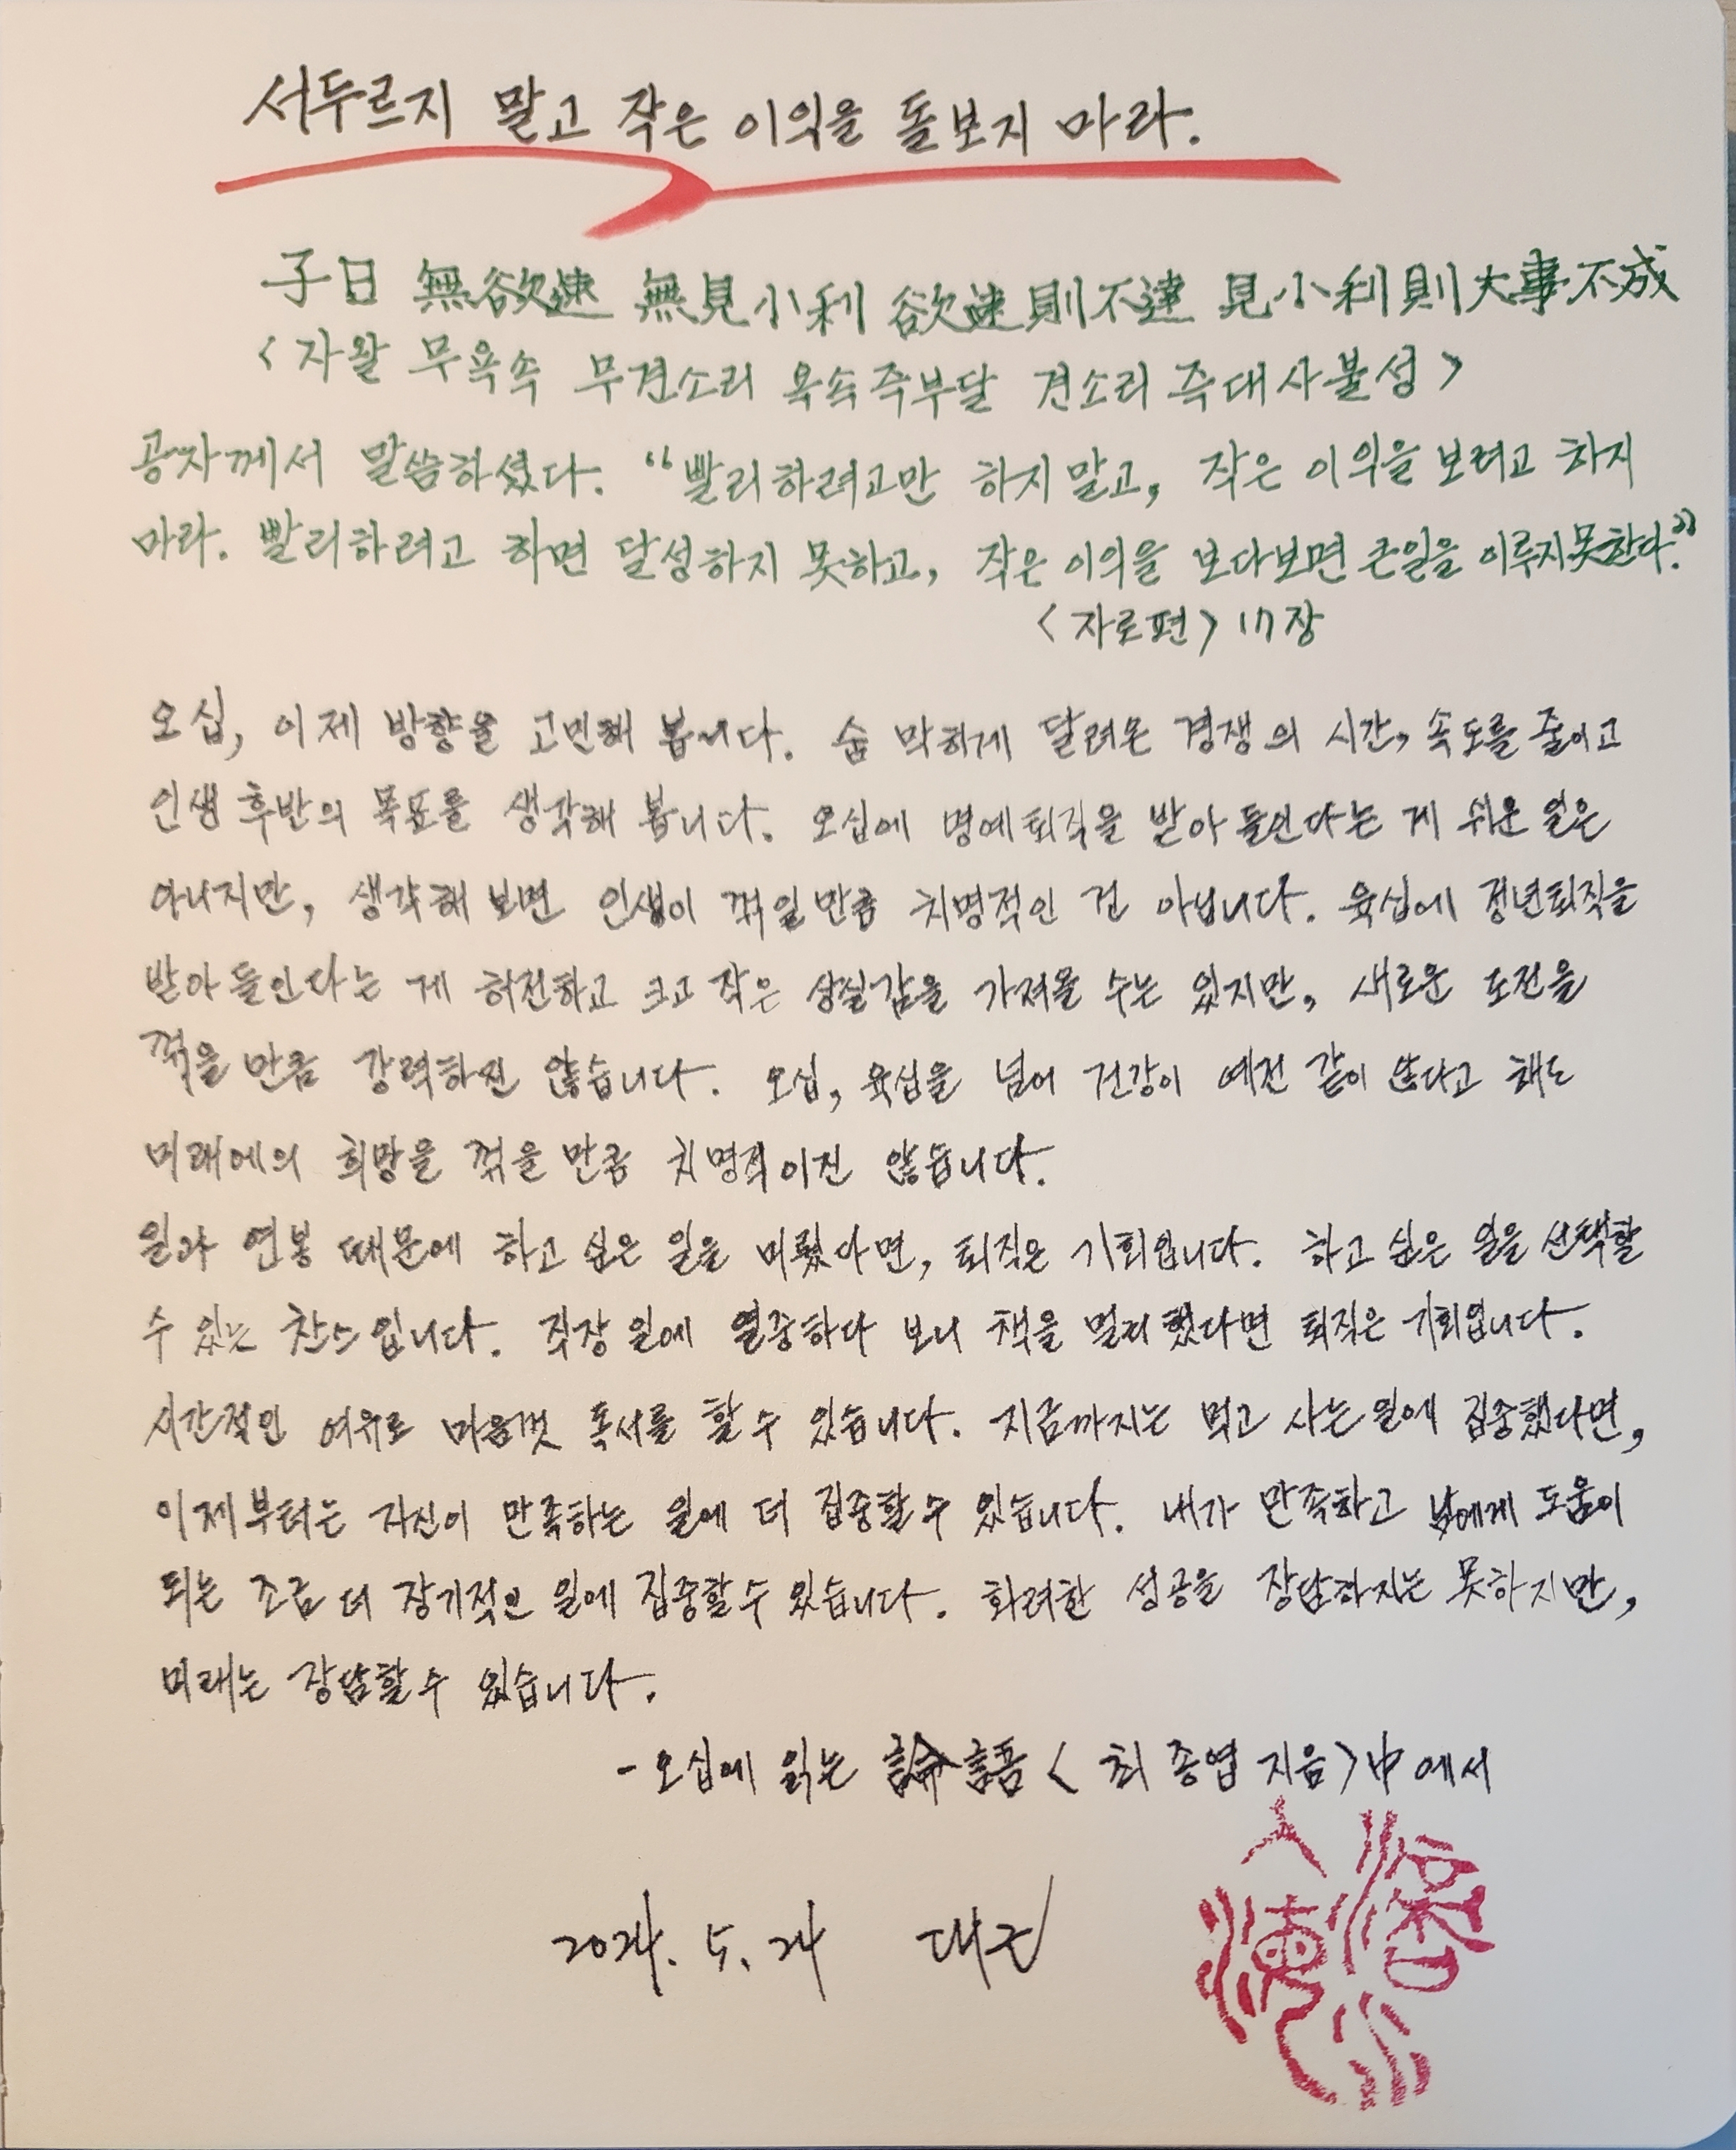 서두르지 말고 작은 이익을 돌보지 마라.
子曰 無欲速 無見小利 欲速則不達 見小利則大事不成
<자왈 무욕속 무견소리 욕속즉부달 견소리즉대사불성>
공자께서 말씀하셨다. “빨리하려고만 하지말고, 작은 이익을 보려고 하지
마라. 빨리하려고 하면 달성하지 못하고, 작은 이익을 보다보면 큰일을 이루지못한다.”
<자로편> 17장
오십, 이제 방향을 고민해 봅니다. 숨 막히게 달려온 경쟁의 시간, 속도를 줄이고
인생 후반의 목표를 생각해 봅니다. 오십에 명예퇴직을 받아 들인다는 게 쉬운 일은
아니지만, 생각해 보면 인생이 꺾일 만큼 치명적인 건 아닙니다. 육십에 정년퇴직을
받아 들인다는 게 허전하고 크고 작은 상실감을 가져올 수는 있지만, 새로운 도전을
꺾을 만큼 강력하진 않습니다. 오십, 육십을 넘어 건강이 예전 같이 않다고 해도
미래에의 희망을 꺾을 만큼 치명적이진 않습니다.
일과 연봉 때문에 하고 싶은 일을 미뤘다면, 퇴직은 기회입니다. 하고 싶은 일을 선택할
수 있는 찬스입니다. 직장 일에 열중하다 보니 책을 멀리했다면 퇴직은 기회입니다.
시간적인 여유로 마음껏 독서를 할 수 있습니다. 지금까지는 먹고 사는 일에 집중했다면,
이제부터는 자신이 만족하는 일에 더 집중할 수 있습니다. 내가 만족하고 남에게 도움이
되는 조금 더 장기적인 일에 집중할 수 있습니다. 화려한 성공을 장담하지는 못하지만,
미래는 장담할 수 있습니다.
- 오십에 읽는 論語 < 최종엽 지음> 中에서
2024. 5. 24 대근